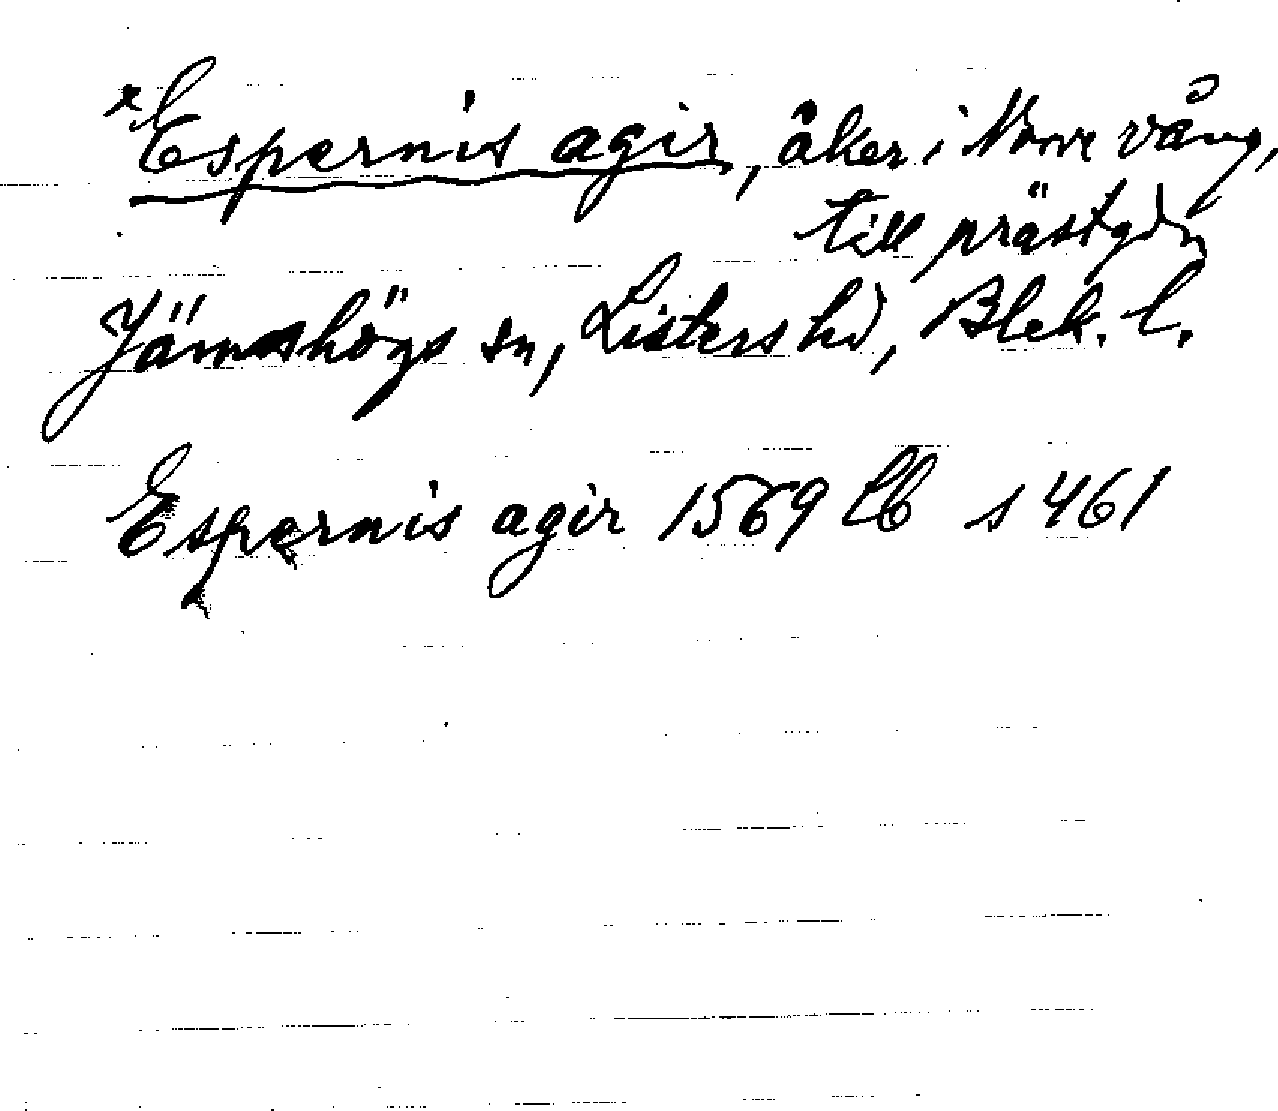 *Espernis agir, åker i Norre vång,
till prästgdn
Jämshögs sn, Listers hd, Blek. l.
Espernis agir 1569 Lb s 461